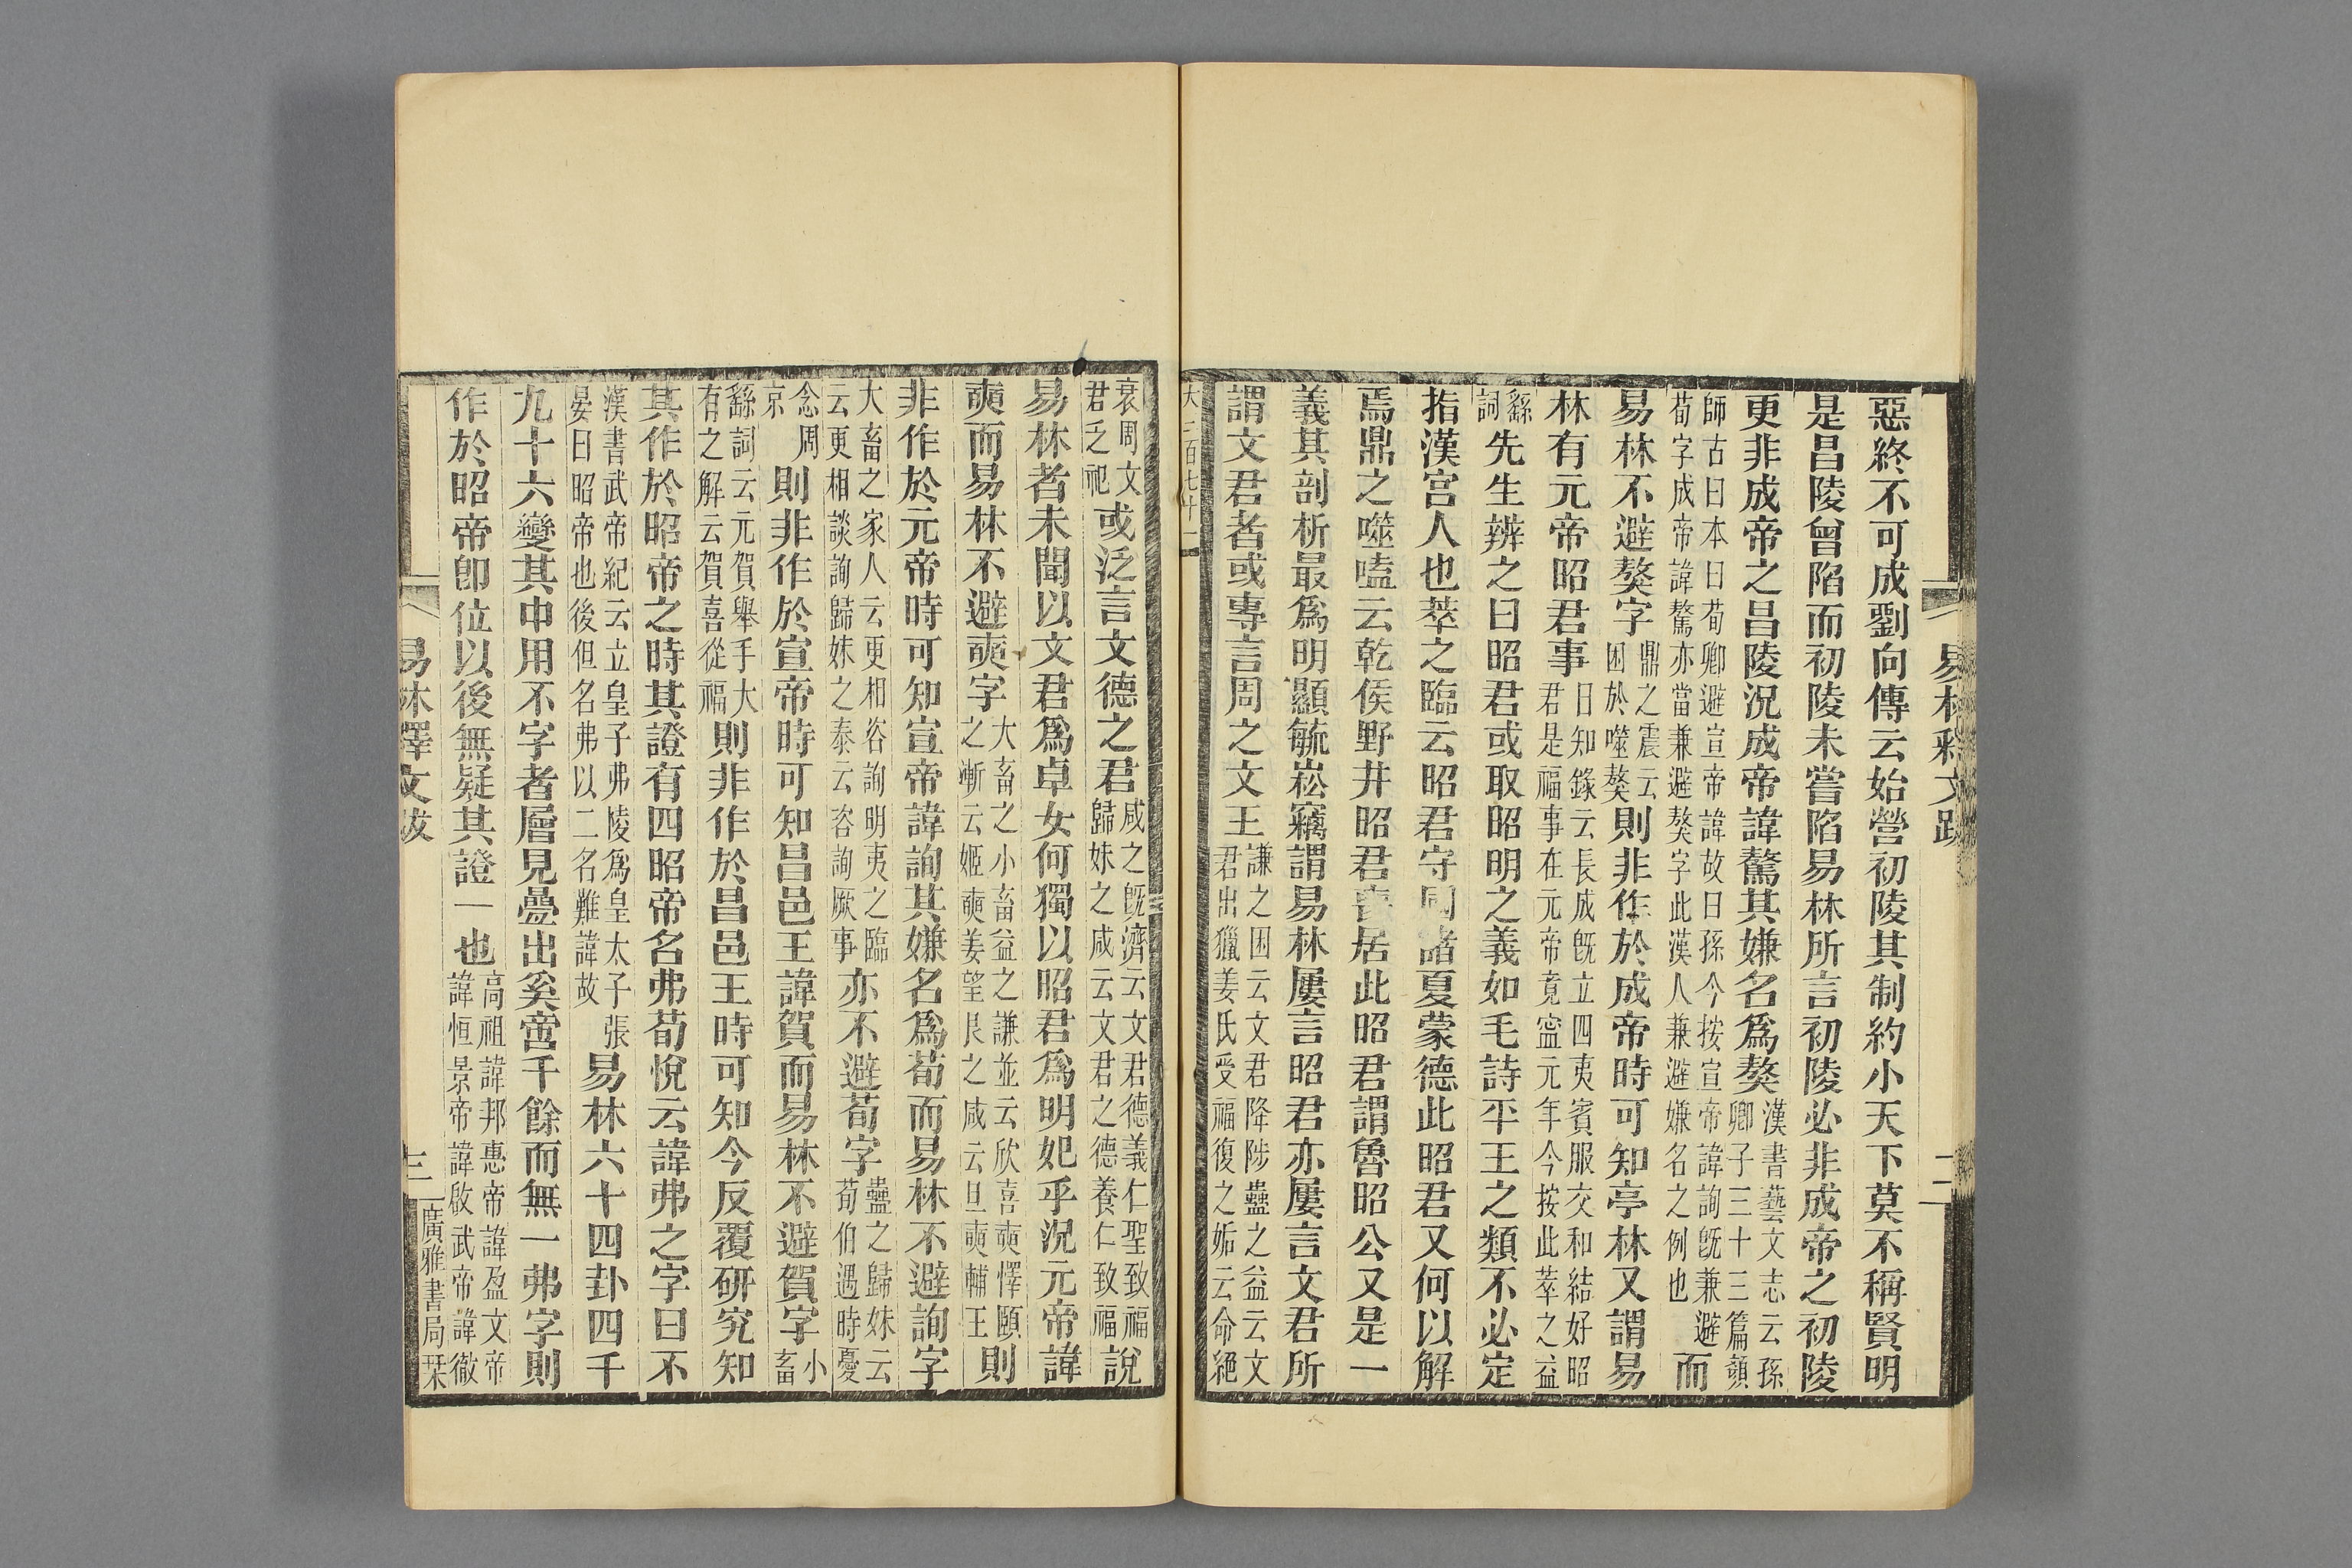 易林釋文跋
二
惡終不可成劉向傳云始營初陵其制約小天下莫不稱賢明
是昌陵曾陷而初陵未嘗陷易林所言初陵必非成帝之初陵
更非成帝之昌陵況成帝諱驁其嫌名爲獒漢書藝文志云孫卿子三十三篇顏
師古曰本曰荀卿避宣帝諱故曰孫今按宣帝諱詢旣兼避荀字成帝諱驁亦當兼避獒字此漢人兼避嫌名之例也而
易林不避獒字鼎之震云困於噬獒則非作於成帝時可知亭林又謂易
林有元帝昭君事日知錄云長成旣立四夷賓服交和結好昭君是福事在元帝竟寧元年今按此萃之益
繇詞先生辨之曰昭君或取昭明之義如毛詩平王之類不必定
指漢宮人也萃之臨云昭君守國諸夏蒙德此昭君又何以解
焉鼎之噬嗑云乾侯野井昭君喪居此昭君謂魯昭公又是一
義其剖析最爲明顯毓崧竊謂易林屢言昭君亦屢言文君所
謂文君者或專言周之文王謙之困云文君降陟蠱之益云文君出獵姜氏受福復之姤云命絕
大二百七十二
衰周文君乏祀或泛言文德之君咸之旣濟云文君德義仁聖致福歸妹之咸云文君之德養仁致福說
易林者未聞以文君爲卓女何獨以昭君爲明妃乎況元帝諱
奭而易林不避奭字大畜之小畜益之謙並云欣喜奭懌頤之漸云姬奭姜望艮之咸云旦奭輔王則
非作於元帝時可知宣帝諱詢其嫌名爲荀而易林不避詢字
大畜之家人云更相咨詢明夷之臨云更相談詢歸妹之泰云咨詢厥事亦不避荀字蠱之歸妹云荀伯遇時憂
念周京則非作於宣帝時可知昌邑王諱賀而易林不避賀字小畜
繇詞云元賀舉手大有之解云賀喜從福則非作於昌邑王時可知今反覆研究知
其作於昭帝之時其證有四昭帝名弗荀悅云諱弗之字曰不
漢書武帝紀云立皇子弗陵爲皇太子張晏曰昭帝也後但名弗以二名難諱故易林六十四卦四千
九十六變其中用不字者層見疊出奚啻千餘而無一弗字則
作於昭帝卽位以後無疑其證一也高祖諱邦惠帝諱盈文帝諱恒景帝諱啟武帝諱徹
易林釋文跋
三
廣雅書局栞